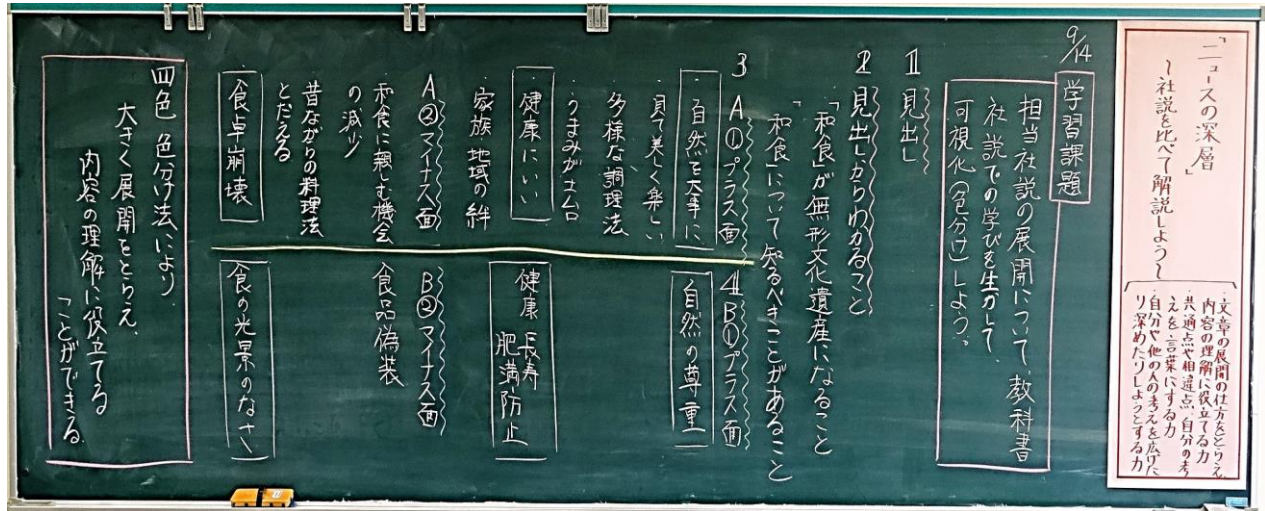 「ニュースの深層」
~社説を比べて解説しよう~
・文章の展開の仕方をとらえ、
内容の理解に役立てる力
・共通点や相違点、自分の考
えを言葉にする力
・自分や他の人の考えを広げた
り深めたりしようとする力
9/14
学習課題
担当社説の展開について、教科書
社説での学びを生かして、
可視化(色分け)しよう。
1 見出し
2 見出しからわかること
「和食」が無形文化遺産になること
「和食」について知るべきことがあること
3 A①プラス面
・自然を大事に
見て美しく楽しい
多様な調理法
・うまみが土台
健康にいい
・家族 地域の絆
A②マイナス面
和食に親しむ機会
の減少
昔ながらの料理法
とだえる
食卓崩壊
4 B①プラス面
自然の尊重
健康 長寿
肥満防止
B②マイナス面
食品偽装
食の光景のなさ
四色 色分け法により、
大きく展開をとらえ、
内容の理解に役立てる
ことができる。